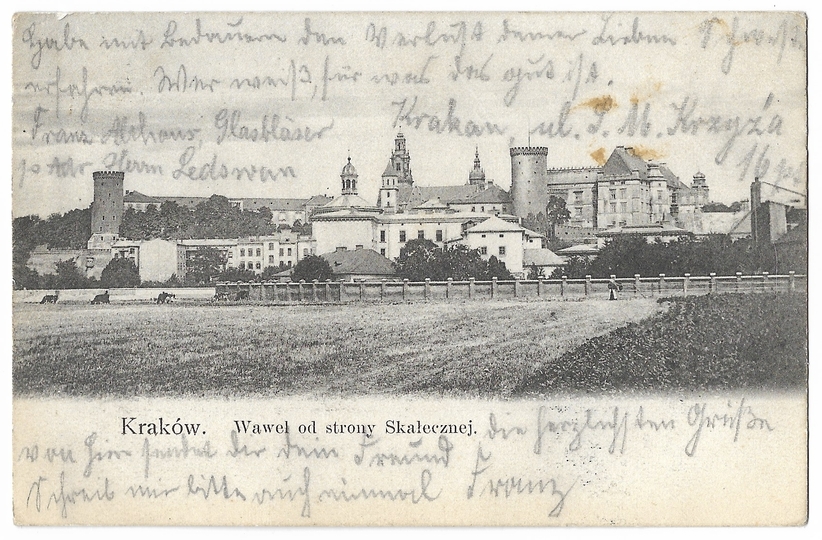 Habe mit Bedauern den Verlust deiner Lieben Schwester
erfahren. Wer weiß, für was das gut ist.
Franz Glasbläser
Krakau, ul. Krzyża
p Adr Herrn
16
Kraków. Wawel od strony Skałecznej.
die herzlichsten Grüße
von hier sendet dir dein Freund
Schreib mir bitte auch einmal Franz